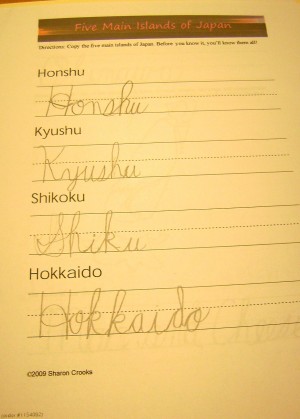 Five Main Islands of Japan
Directions: Copy the five main islands of Japan. Before you know it, you'll know them all!
Honshu
Honshu
Kyushu
Kyushu
Shikoku
Shiku
Hokkaido
Hokkaido
©2009 Sharon Crooks